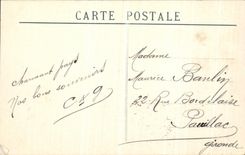 CARTE POSTALE
charmant pays
Nos bons souvenirs
Madame
Maurice
22 Rue Bordelaise
Pauillac
Gironde